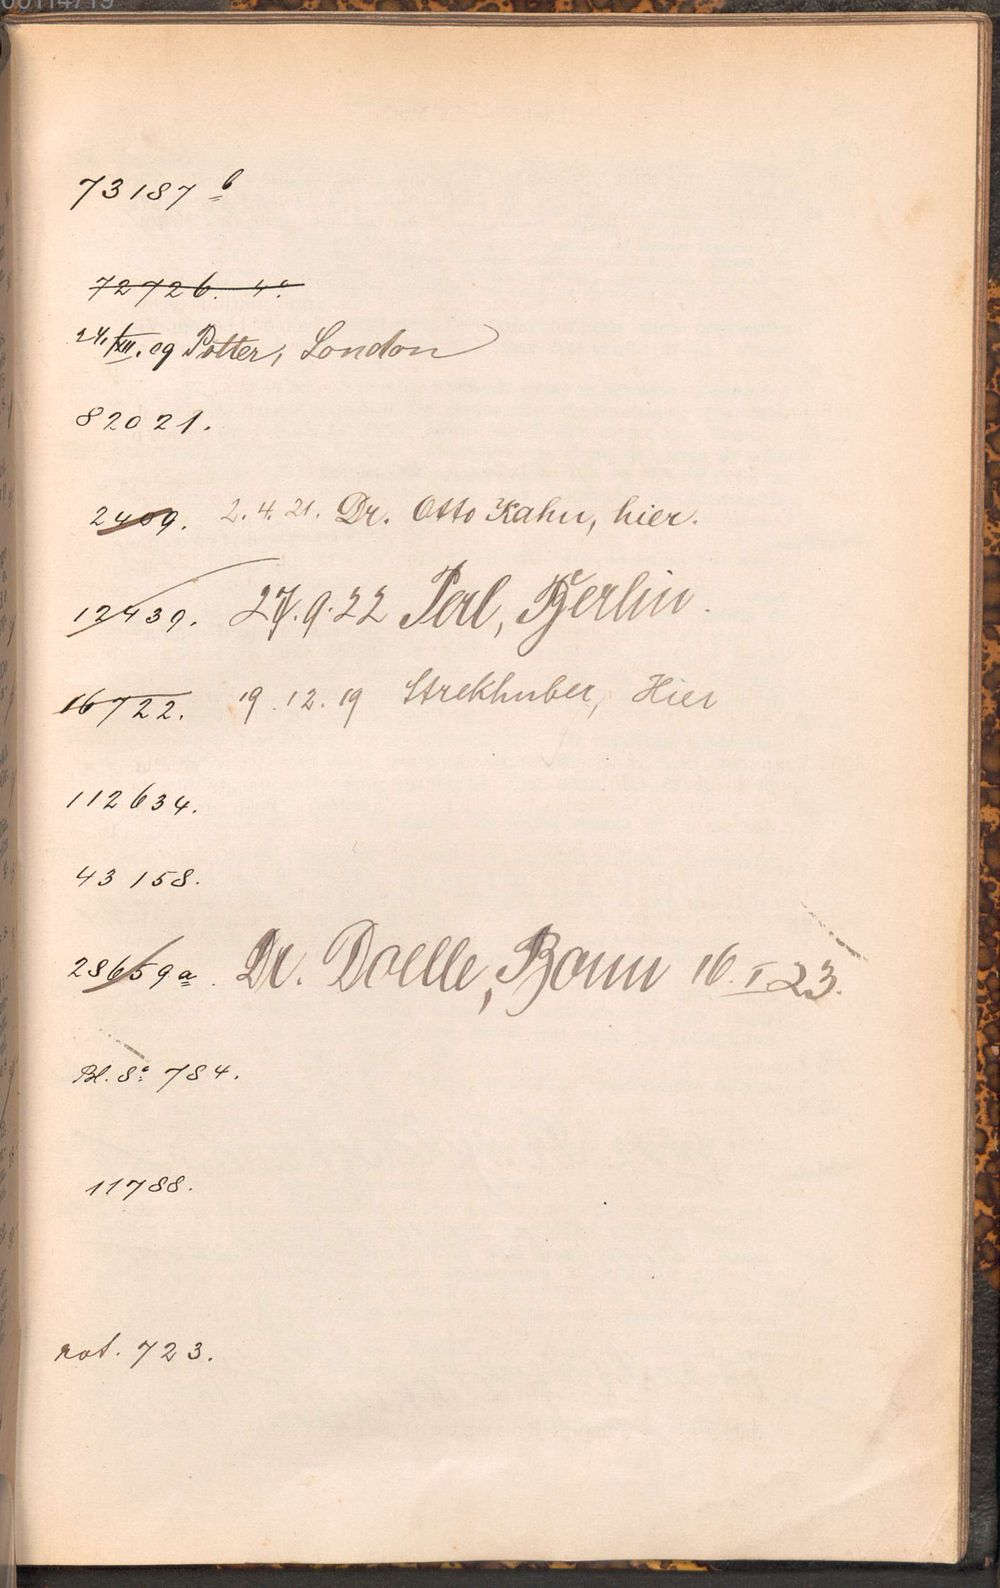 00114719
73187 b
72726. 4°.
24./XII. 09 Potter, London
82021.
2409. 2. 4. 21. Dr. Otto Kahn, hier.
12439. 27. 9. 22 Perl, Berlin.
16722. 19. 12. 19 Strekhuber, Hier
112634.
43158.
28659a. Dr. Doelle, Bonn 16. I 23.
Bl. 8° 784.
11788.
rot. 723.